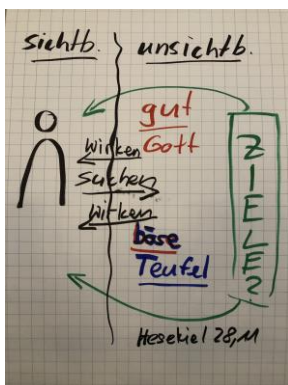 sichtb.
unsichtb.
gut
Gott
wirken
suchen
wirken
böse
Teufel
ZIELE?
Hesekiel 28,11